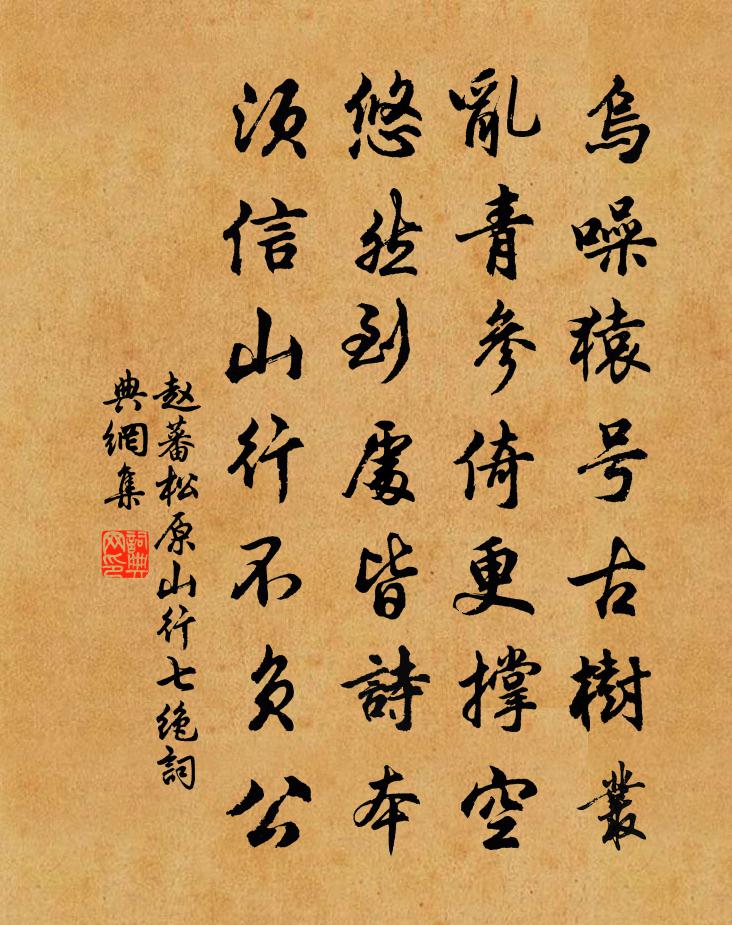 烏噪猿号古樹叢
亂青參倚更撐空
悠然到處皆詩本
須信山行不負公
赵蕃松原山行七绝詞
典網集
詞典网印